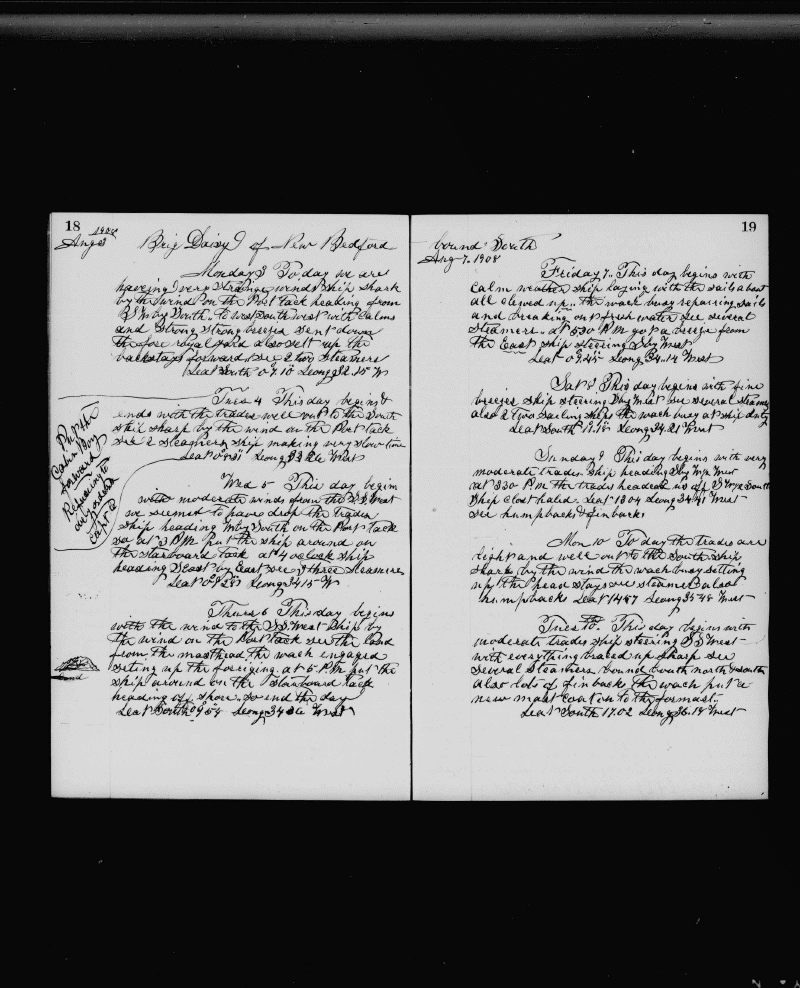 18
1908
Aug 3 Brig Daisy of New Bedford
Monday 3 To day we are
having very strange winds ship sharp
by the wind on the Port tack heading from
by South to west south west with calms
and strong strong breezes sent down
the fore royal yard also sett up the
backstays forward, see 2 two steamers
Leat South 09.10 Leong 32.15 W
Tues 4 This day begins &
ends with the trades well out to the South
ship sharp by the wind on the Port tack
see 2 steamers ship making very slow time
Leat 09 Leong 33 26 West
Put the
Cabin Boy
forward
Refusing to
duty orders
Capt
Wed 5 This day begin
with moderate winds from the S S West
we seemed to have drop the trades
ship heading W by South on the Port tack
so at 3 P.M. Put the ship around on
the starboard tack at 4 oclock ship
heading S East by East, see 3 three steamers
Leat 09 28 Leong 34 15 W
Thurs 6 This day begins
with the wind to the S S West ship by
the wind on the Port tack see the land
from the masthead, the wach engaged
seting up the foreiging. at 5 P.M. put the
ship around on the starboard tack
heading of shore. So end the day
Leat South 09 54 Leong 34 26 West
land
19
bound South
Aug 7. 1908
Friday 7. This day begins with
calm weather ship laying with the sails about
all clewed up. the wach busy repairing sails
and breaking out fresh water see several
steamers. at 5 30 P.M got a breeze from
the East ship steering S by West
Leat 09.45 Leong 34.14 West
Sat 8 This day begins with fine
breezes ship steering S by West see several steamers
also 2 two sailing ships the wach busy at ship duty
Leat South 11.18 Leong 34.21 West
Sunday 9 This day begins with very
moderate trades ship heading S by W
at 3 30 P.M the trades headed us of South
Ship clost haled Leat 13 04 Leong 34 41 West
see humpbacks & finbacks
Mon 10 To day the trades are
light and well out to the South ship
sharp by the wind the wach busy setting
up the head stays see steamer also
humpbacks Leat 14 47 Leong 35 48 West
Tues 11. This day begins with
moderate trades ship steering S S West
with everything braced up sharp see
several steamers bound bouth north & south
also lots of finbacks the wach put a
new mast coat on to the formast.
Leat South 17.02 Leong 36.18 West